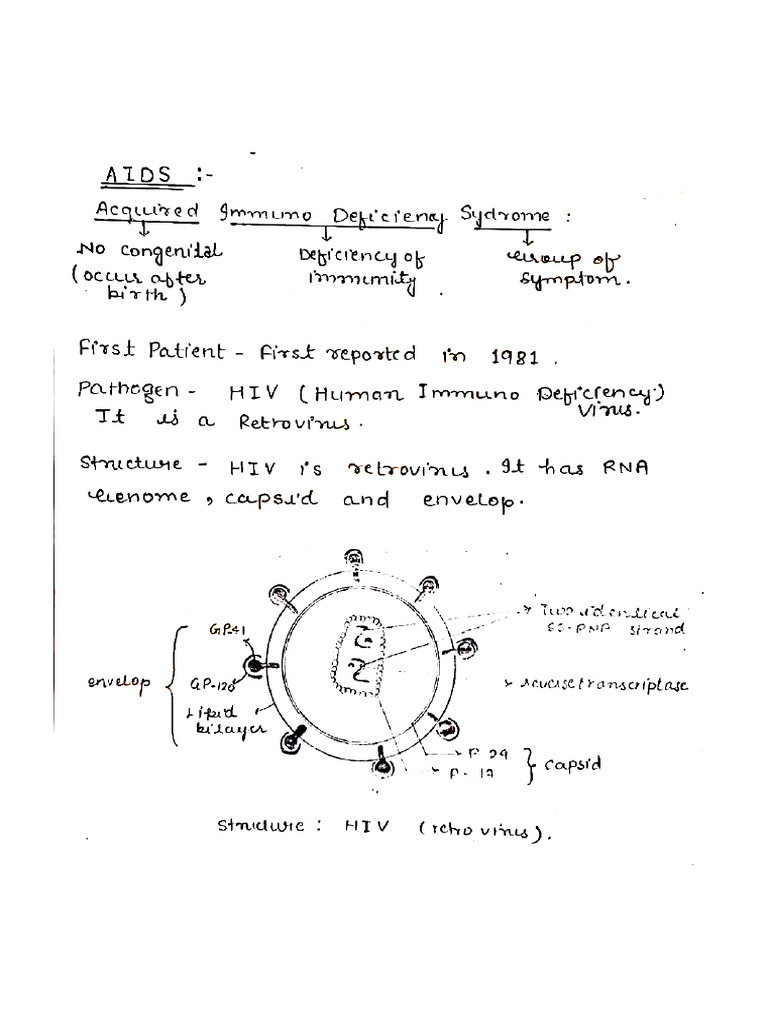 AIDS :-
Acquired Immuno Deficiency Sydrome :
No congenital
(occur after
birth)
Deficiency of
immunity
Group of
symptom.
First Patient - First reported in 1981.
Pathogen - HIV (Human Immuno Deficiency)
Virus.
It is a Retrovirus.
Structure - HIV is retrovirus. It has RNA
Genome, capsid and envelop.
Two identical
SS-RNA strand
GP-41
envelop
GP-120
Lipid
bilayer
reversetranscriptase
P-24
P-17
capsid
Structure : HIV (retrovirus).